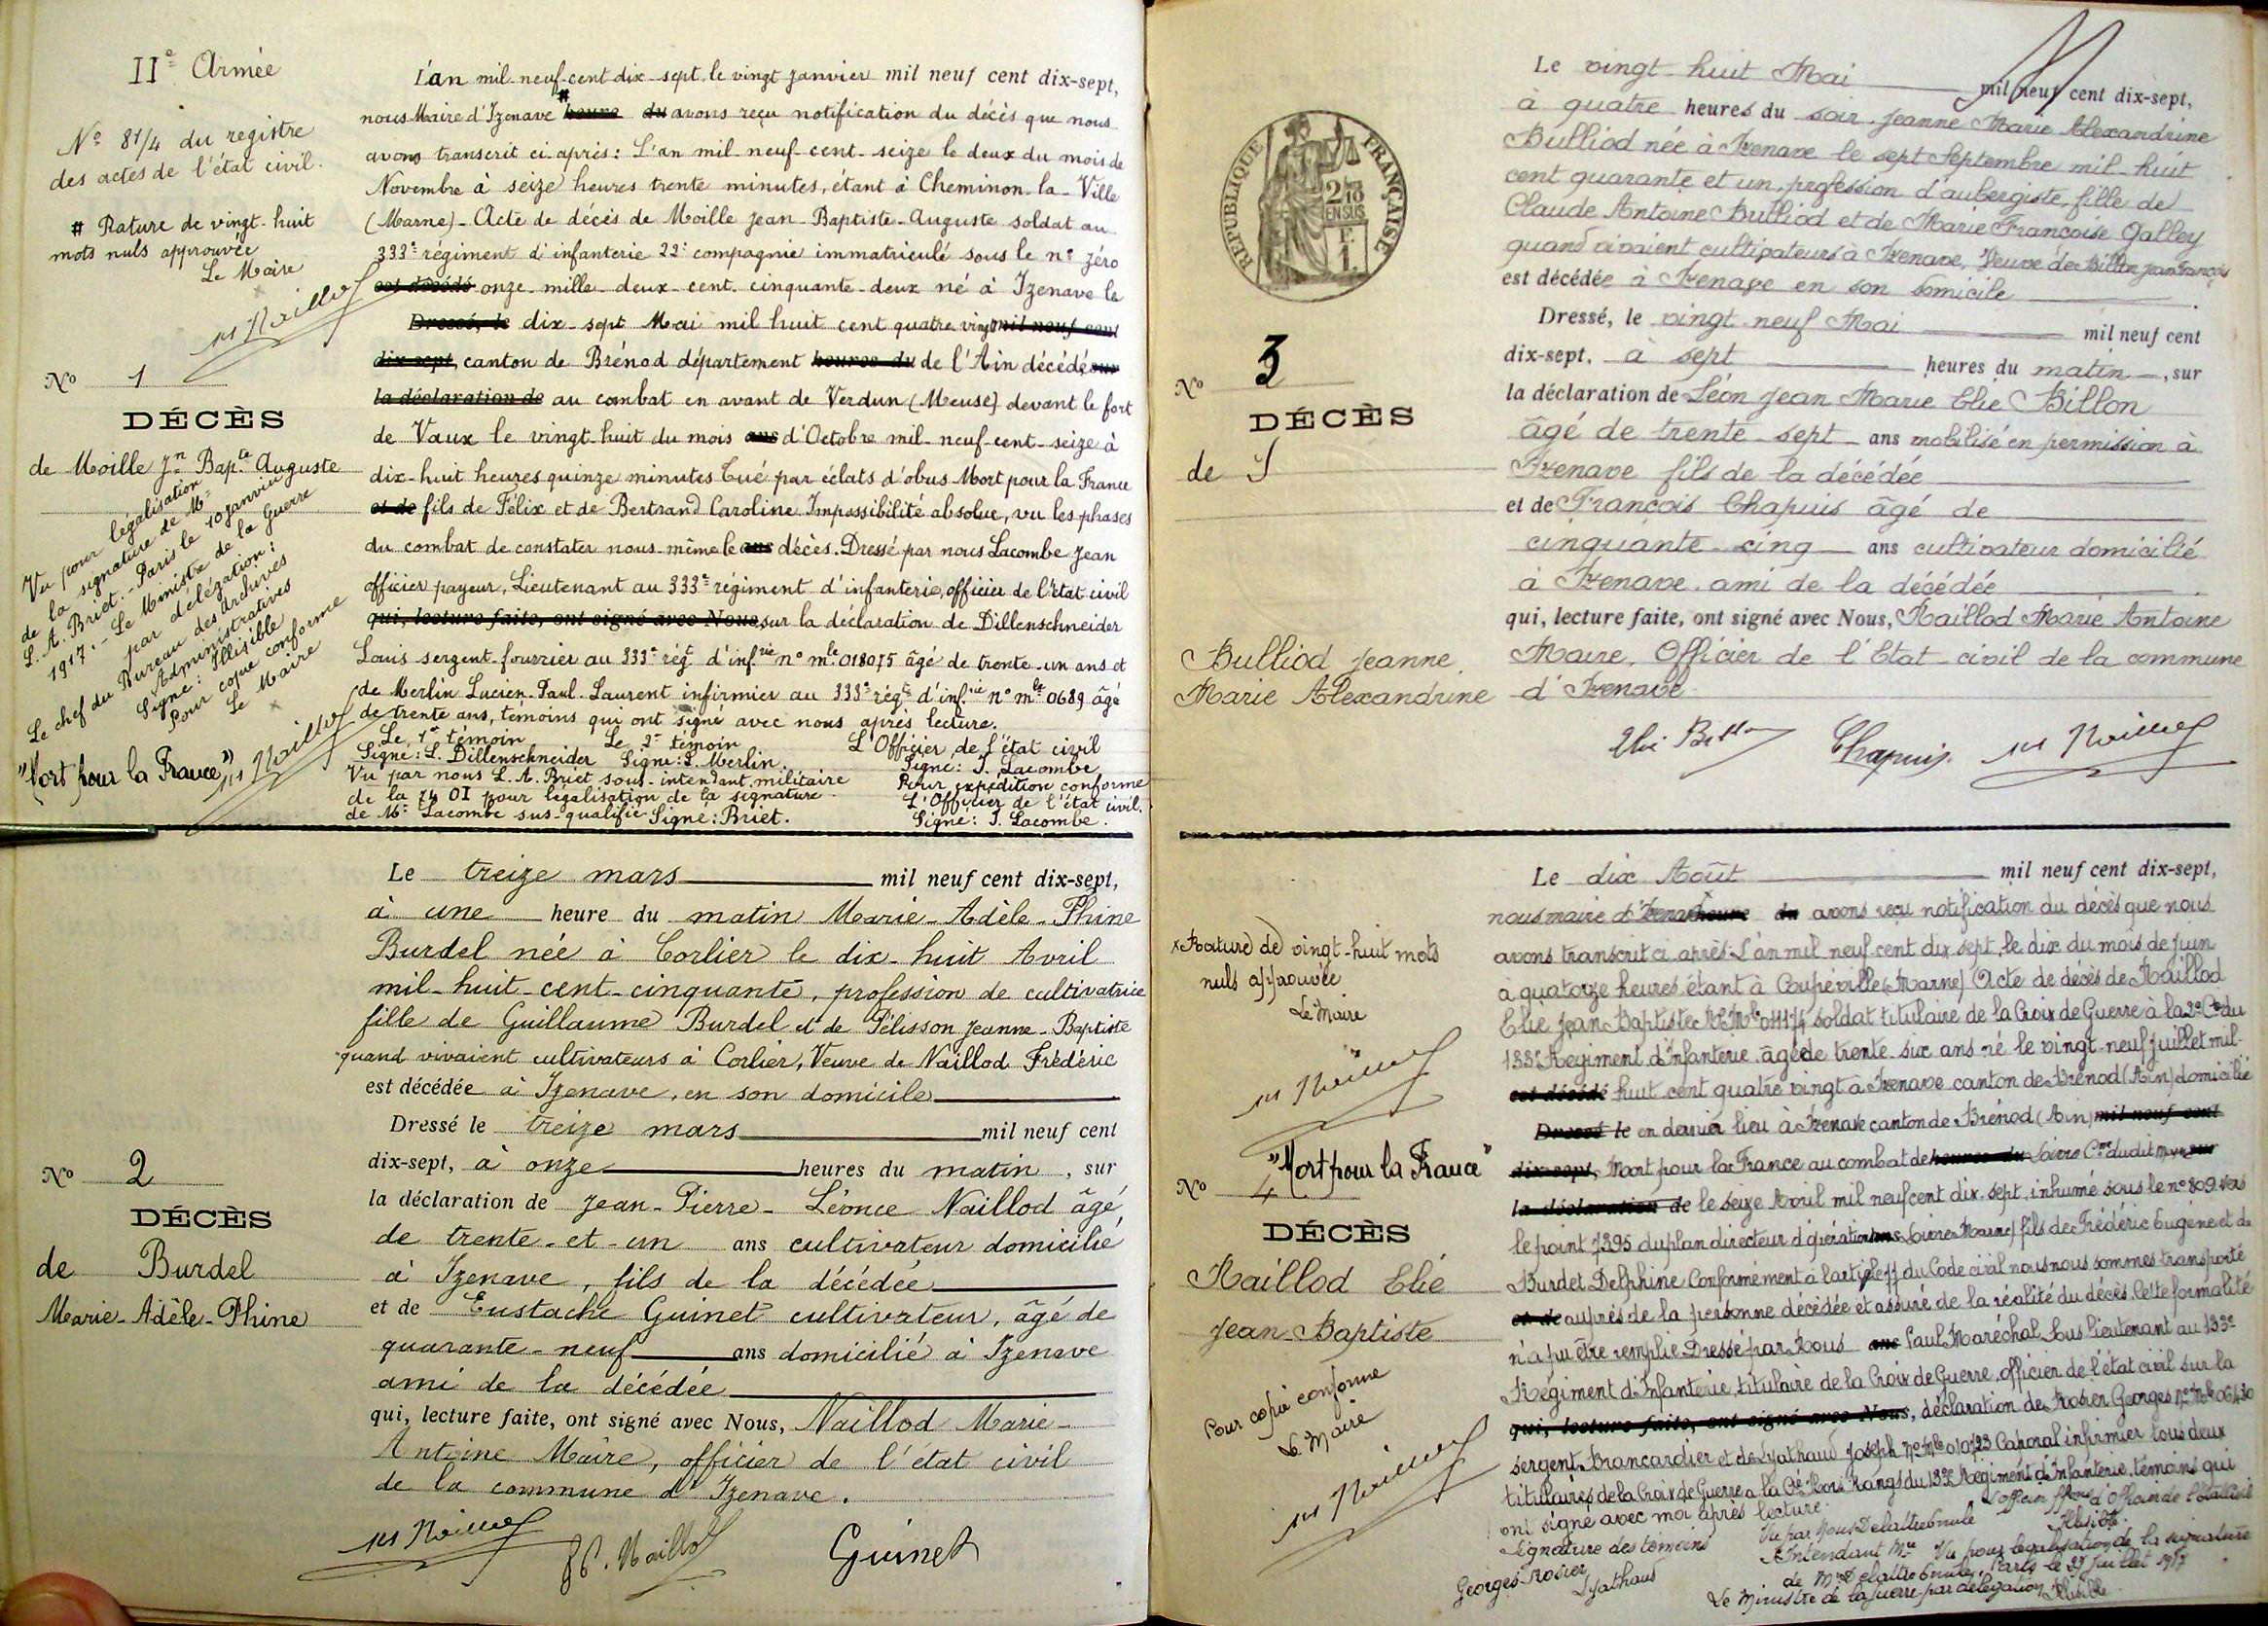 IIe Armée
No 81/4 du registre
des actes de l'état civil.
# Rature de vingt-huit
mots nuls approuvée
Le Maire
No 1
DÉCÈS
de Moille Jn Bapte Auguste
Vu pour légalisation
de la signature de Mr
L. A. Briet. - Paris le 10 janvier
1917. - Le Ministre de la Guerre
par délégation:
Le chef du Bureau des Archives
Administratives
Signé: Illisible
Pour copie conforme
Le Maire
"Mort pour la France"
L'an mil-neuf-cent dix-sept le vingt janvier mil neuf cent dix-sept,
nous Maire d'Izenave # heure du avons reçu notification du décès que nous
avons transcrit ci après: L'an mil-neuf-cent-seize le deux du mois de
Novembre à seize heures trente minutes, étant à Cheminon-la-Ville
(Marne)- Acte de décès de Moille Jean-Baptiste-Auguste soldat au
333e régiment d'infanterie 22e compagnie immatriculé sous le no zéro
est décédé onze-mille-deux-cent-cinquante-deux né à Izenave le
Dressé, le dix-sept Mai mil huit cent quatre vingt mil neuf cent
dix-sept, canton de Brénod département heures du de l'Ain décédé sur
la déclaration de au combat en avant de Verdun (Meuse) devant le fort
de Vaux le vingt-huit du mois ans d'Octobre mil-neuf-cent-seize à
dix-huit heures quinze minutes Tué par éclats d'obus Mort pour la France
et de fils de Félix et de Bertrand Caroline Impossibilité absolue, vu les phases
du combat de constater nous-même le ans décès. Dressé par nous Lacombe Jean
officier payeur, Lieutenant au 333e régiment d'infanterie, officier de l'état civil
qui, lecture faite, ont signé avec Nous sur la déclaration de Dillenschneider
Louis sergent-fourrier au 333e régt d'infrie no mle 018075 âgé de trente-un ans et
de Merlin Lucien-Paul-Laurent infirmier au 333e régt d'infrie no mle 0689 âgé
de trente ans, témoins qui ont signé avec nous après lecture.
Le 1er témoin Le 2e témoin L'Officier de l'état civil
Signé: L. Dillenschneider Signé: L. Merlin. Signé: J. Lacombe
Vu par nous L. A. Briet sous-intendant militaire Pour expédition conforme
de la 74 DI pour légalisation de la signature L'Officier de l'état civil.
de Mr Lacombe sus-qualifié Signé: Briet. Signé: J. Lacombe.
No 2
DÉCÈS
de Burdel
Marie-Adèle-Phine
Le treize mars mil neuf cent dix-sept,
à une heure du matin Marie-Adèle-Phine
Burdel née à Corlier le dix-huit Avril
mil-huit-cent-cinquante, profession de cultivatrice
fille de Guillaume Burdel et de Pélisson Jeanne-Baptiste
quand vivaient cultivateurs à Corlier, Veuve de Naillod Frédéric
est décédée à Izenave, en son domicile
Dressé le treize mars mil neuf cent
dix-sept, à onze heures du matin, sur
la déclaration de Jean-Pierre-Léonce Naillod âgé
de trente-et-un ans cultivateur domicilié
à Izenave, fils de la décédée
et de Eustache Guinet cultivateur, âgé de
quarante-neuf ans domicilié à Izenave
ami de la décédée
qui, lecture faite, ont signé avec Nous, Naillod Marie-
Antoine Maire, officier de l'état civil
de la commune d'Izenave.
Guinet
RÉPUBLIQUE FRANÇAISE
2/10
EN SUS
No 3
DÉCÈS
de
Bulliod Jeanne
Marie Alexandrine
Le vingt-huit Mai mil neuf cent dix-sept,
à quatre heures du soir. Jeanne Marie Alexandrine
Bulliod née à Izenave le sept Septembre mil-huit
cent quarante et un, profession d'aubergiste, fille de
Claude Antoine Bulliod et de Marie Françoise Galley
quand vivaient cultivateurs à Izenave, Veuve de Billon Jean François
est décédée à Izenave en son domicile
Dressé, le vingt-neuf Mai mil neuf cent
dix-sept, à sept heures du matin, sur
la déclaration de Léon Jean Marie Elie Billon
âgé de trente-sept ans mobilisé en permission à
Izenave fils de la décédée
et de François Chapuis âgé de
cinquante-cinq ans cultivateur domicilié
à Izenave, ami de la décédée
qui, lecture faite, ont signé avec Nous, Naillod Marie Antoine
Maire, Officier de l'Etat-civil de la commune
d'Izenave
Chapuis.
x Rature de vingt-huit mots
nuls approuvée
Le Maire
"Mort pour la France"
No 4
DÉCÈS
Naillod Elie
Jean Baptiste
Pour copie conforme
Le Maire
Le dix Août mil neuf cent dix-sept,
nous maire d'Izenave heure du avons reçu notification du décès que nous
avons transcrit ci après: L'an mil neuf cent dix sept, le dix du mois de Juin
à quatorze heures étant à Coupéville (Marne) Acte de décès de Naillod
Elie Jean Baptiste soldat titulaire de la Croix de Guerre à la 2e Cie du
133e Régiment d'Infanterie âgé de trente-six ans né le vingt-neuf juillet mil-
est décédé huit cent quatre vingt à Izenave canton de Brénod (Ain) domicilié
Dressé le en dernier lieu à Izenave canton de Brénod (Ain) mil neuf cent
dix-sept, Mort pour la France au combat de heures du Loivre sur
la déclaration de le seize Avril mil neuf cent dix-sept, inhumé sous le no 809 vers
le point 7395 du plan directeur d'opérations ans Loivre (Marne) fils de Frédéric Eugène et de
Burdet Delphine Conformément à l'article 77 du Code civil nous nous sommes transporté
et de auprès de la personne décédée et assuré de la réalité du décès. Cette formalité
n'a pu être remplie Dressé par Nous ans Paul Maréchal Sous lieutenant au 133e
Régiment d'Infanterie, titulaire de la Croix de Guerre, officier de l'état civil sur la
qui, lecture faite, ont signé avec Nous, déclaration de Rosier Georges
sergent Brancardier et de Lyathaud Joseph Caporal infirmier tous deux
titulaires de la Croix de Guerre à la Cie Hors Rangs du 133e Régiment d'Infanterie, témoins qui
ont signé avec moi après lecture.
Signature des témoins
Georges Rosier Lyathaud
Vu pour légalisation de la signature
Paris le 27 Juillet 1917
Le Ministre de la guerre par délégation